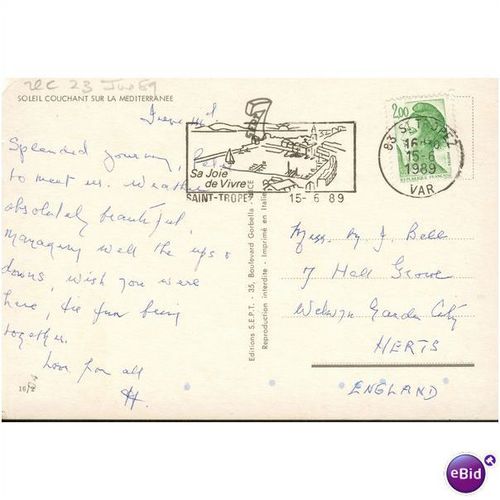 rec 23 Jun 89
SOLEIL COUCHANT SUR LA MEDITERRANEE
June 14th
Splendid journey,
to meet us. Weather
absolutely beautiful,
managing well the ups &
downs, wish you were
here, fun being
together.
Love for all
H
16/
Sa Joie
de Vivre
SAINT-TROPEZ
15- 6 89
Editions S.E.P.T. - 35, Boulevard Gorbella
Reproduction interdite - Imprimé en Italie
2,00
83 ST TROPEZ
15-6
1989
VAR
J. Bell
7 Hall Grove
Welwyn Garden City
HERTS
ENGLAND
eBid